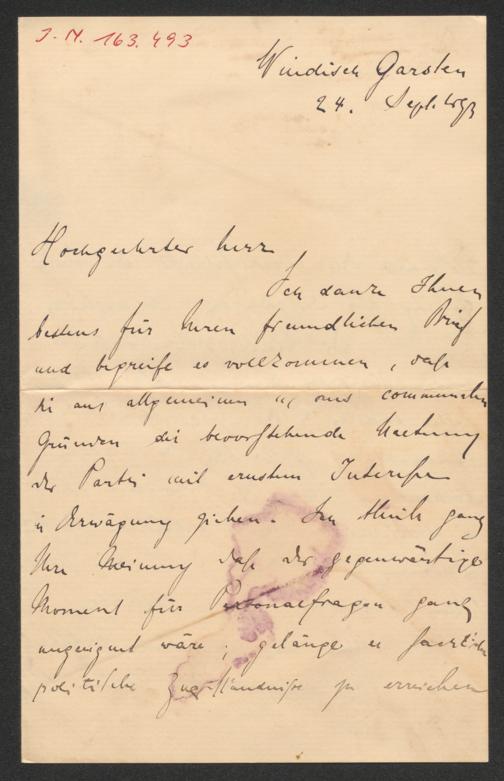 J. N. 163.493
Windisch Garsten
24. Sept.
Hochgeehrter Herr
Ich danke Ihnen
bestens für Ihren freundlichen Brief
und begreife es vollkommen, dass
Sie aus allgemeinen u. aus communalen
Gründen die bevorstehende
der Partei mit ernstem Interesse
in Erwägung ziehen. Ich theile ganz
Ihre Meinung dass der gegenwärtige
Moment für Personalfragen ganz
ungeeignet wäre; gelänge es
politische Zugeständnisse zu erreichen